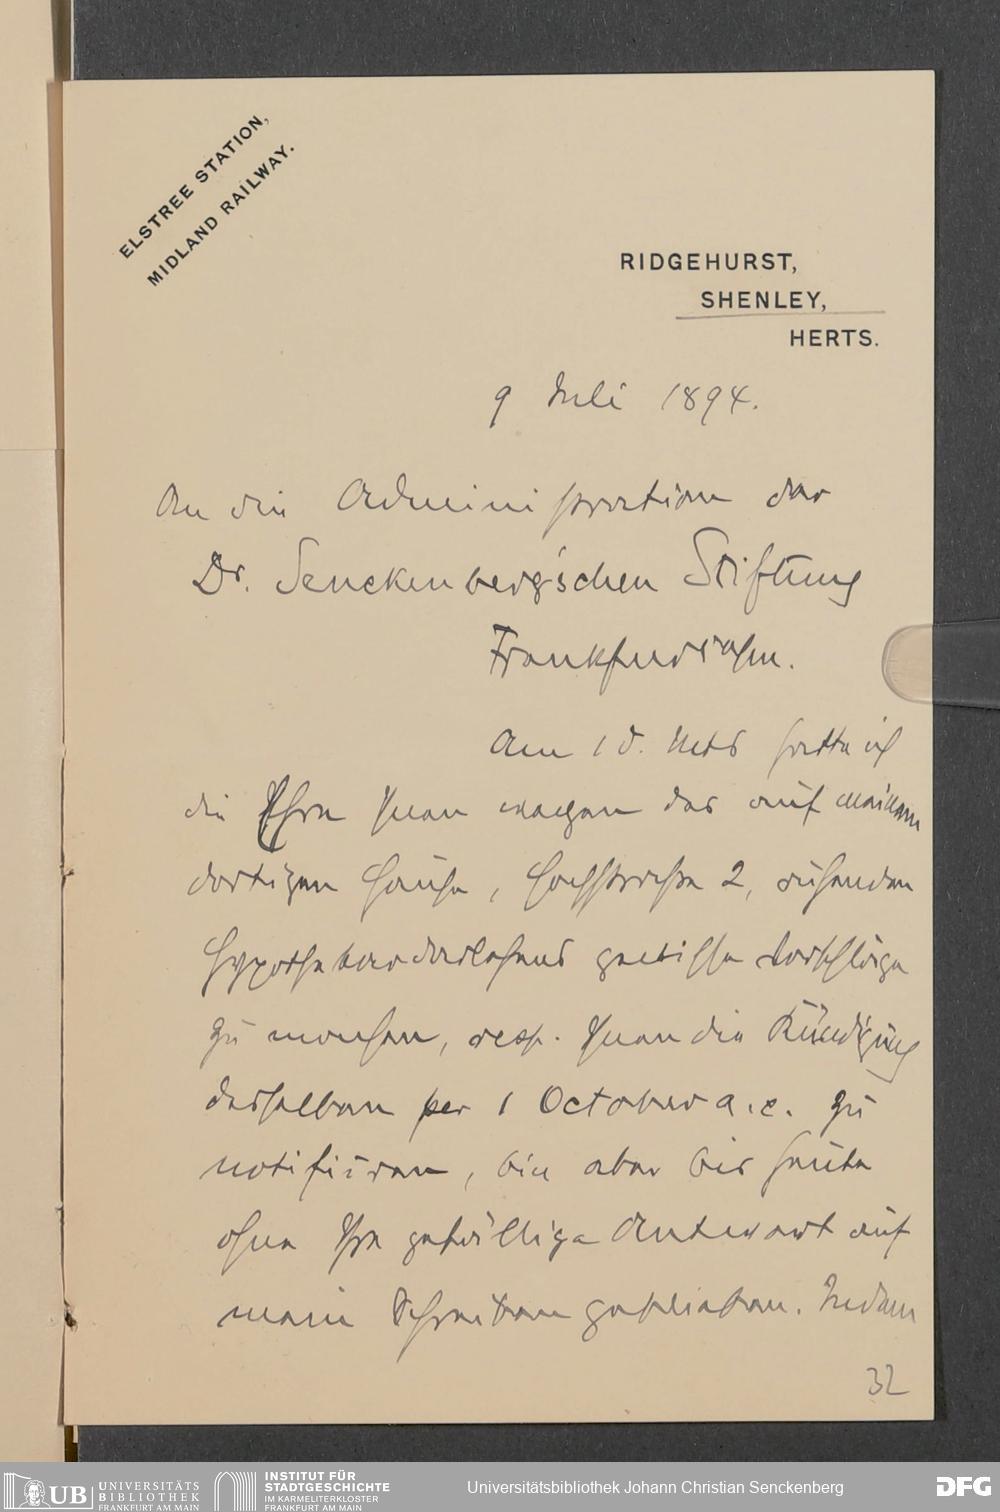 ELSTREE STATION,
MIDLAND RAILWAY.
RIDGEHURST,
SHENLEY,
HERTS.
9 Juli 1894.
An die Administration der
Dr. Senckenberg'schen Stiftung
Frankfurt a/m.
Am 1 d. Mts hatte ich
die Ehre Ihnen wegen des auf meinem
dortigen Hause, Hochstrasse 2, ruhenden
Hypothekardarlehens gewisse Vorschläge
zu machen, resp. Ihnen die Kündigung
desselben per 1 October a.c. zu
notifiziren, bin aber bis heute
ohne Ihre gefällige Antwort auf
mein Schreiben geblieben. Indem
32
UB UNIVERSITÄTS
BIBLIOTHEK
FRANKFURT AM MAIN
INSTITUT FÜR
STADTGESCHICHTE
IM KARMELITERKLOSTER
FRANKFURT AM MAIN
Universitätsbibliothek Johann Christian Senckenberg
DFG